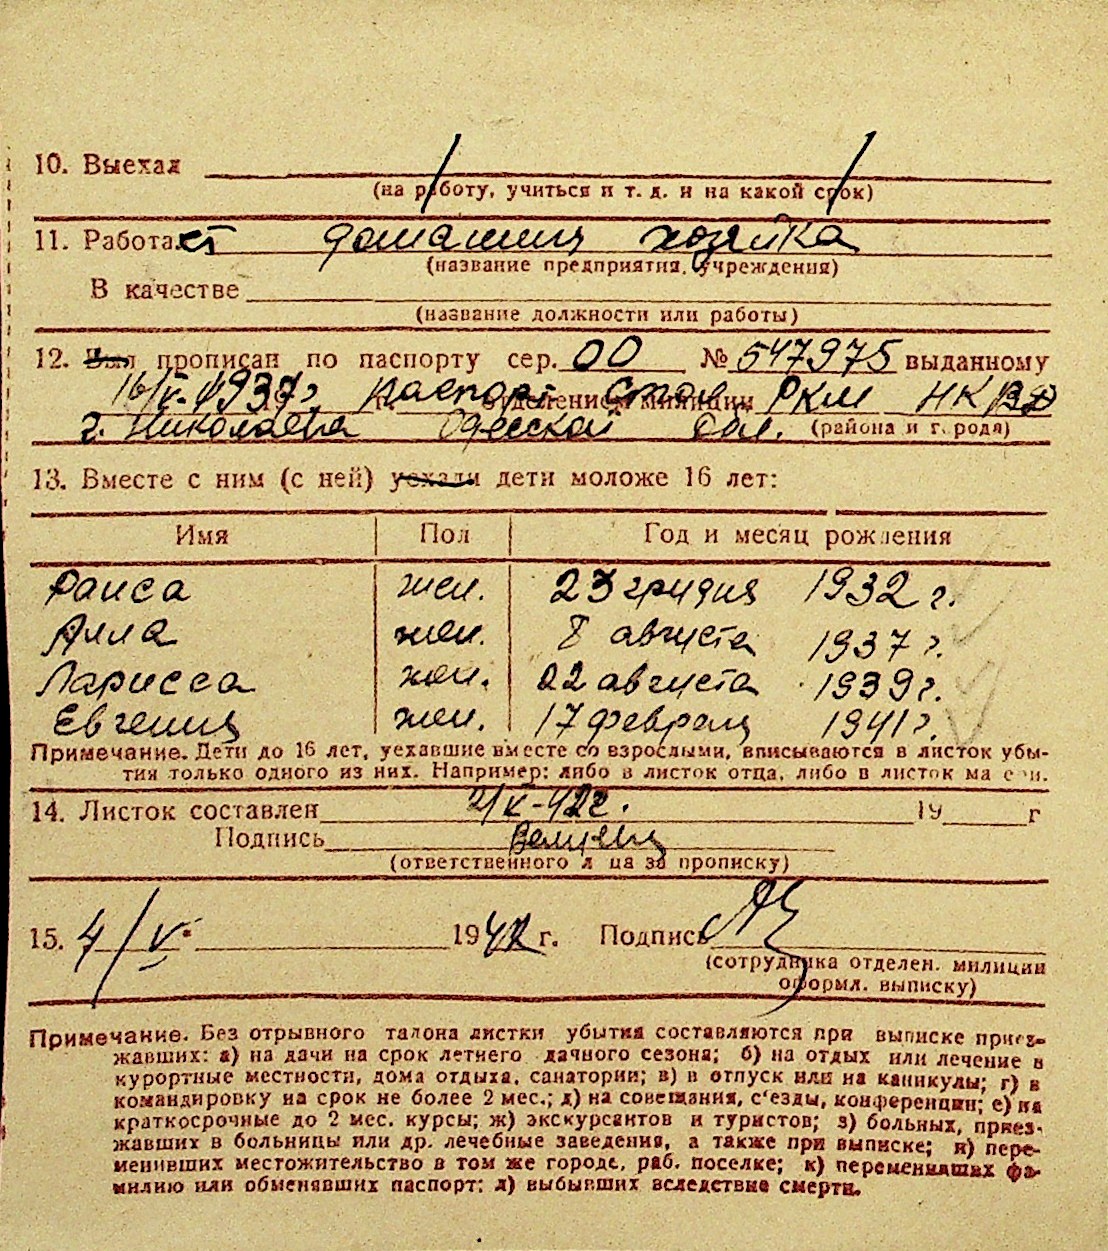 10. Выехал
(на работу, учиться и т. д. и на какой срок)
11. Работает домашняя хозяйка
(название предприятия, учреждения)
В качестве
(название должности или работы)
12. Был прописан по паспорту сер. ОО № 547975 выданному
16/V-1937 г. паспорт. столом РКМ НКВД
отделением милиции
г. Николаева Одесской обл. (района и города)
13. Вместе с ним (с ней) уехали дети моложе 16 лет:
Имя Пол Год и месяц рождения
Раиса жен. 23 грудня 1932 г.
Алла жен. 8 августа 1937 г.
Ларисса жен. 22 августа 1939 г.
Евгения жен. 17 февраля 1941 г.
Примечание. Дети до 16 лет, уехавшие вместе со взрослыми, вписываются в листок убы-
тия только одного из них. Например: либо в листок отца, либо в листок матери.
14. Листок составлен 2/V-42г. 19 г
Подпись
(ответственного лица за прописку)
15. 4/V 1942 г. Подпись
(сотрудника отделен. милиции
оформл. выписку)
Примечание. Без отрывного талона листки убытия составляются при выписке приез-
жавших: а) на дачи на срок летнего дачного сезона; б) на отдых или лечение в
курортные местности, дома отдыха, санатории; в) в отпуск или на каникулы; г) в
командировку на срок не более 2 мес.; д) на совещания, с'езды, конференции; е) на
краткосрочные до 2 мес. курсы; ж) экскурсантов и туристов; з) больных, приез-
жавших в больницы или др. лечебные заведения, а также при выписке; и) пере-
менивших местожительство в том же городе, раб. поселке; к) переменивших фа-
милию или обменявших паспорт; л) выбывших вследствие смерти.